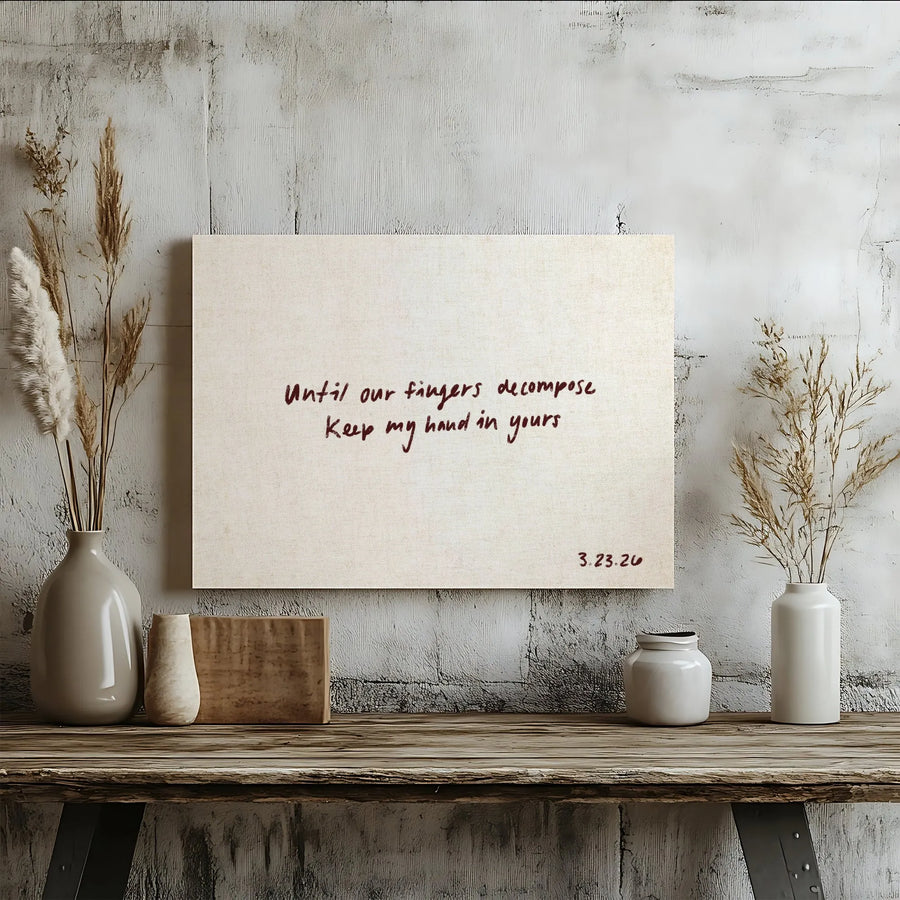 Until our fingers decompose
Keep my hand in yours
3.23.26